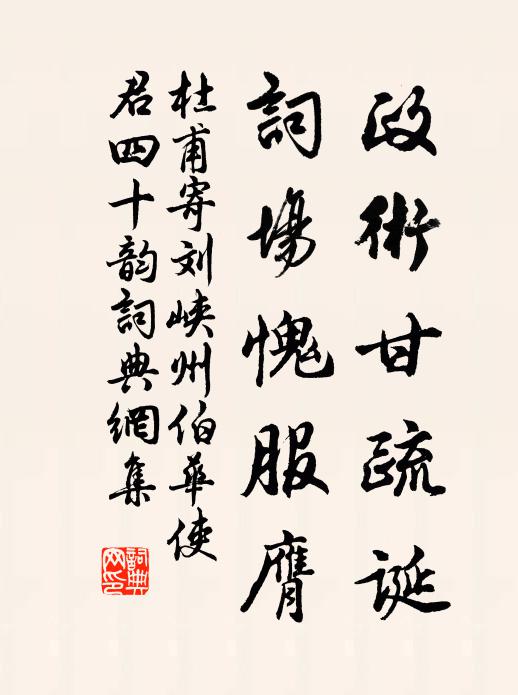 政術甘疏誕
詞場愧服膺
杜甫寄刘峽州伯華使
君四十韵詞典網集
詞典
网印